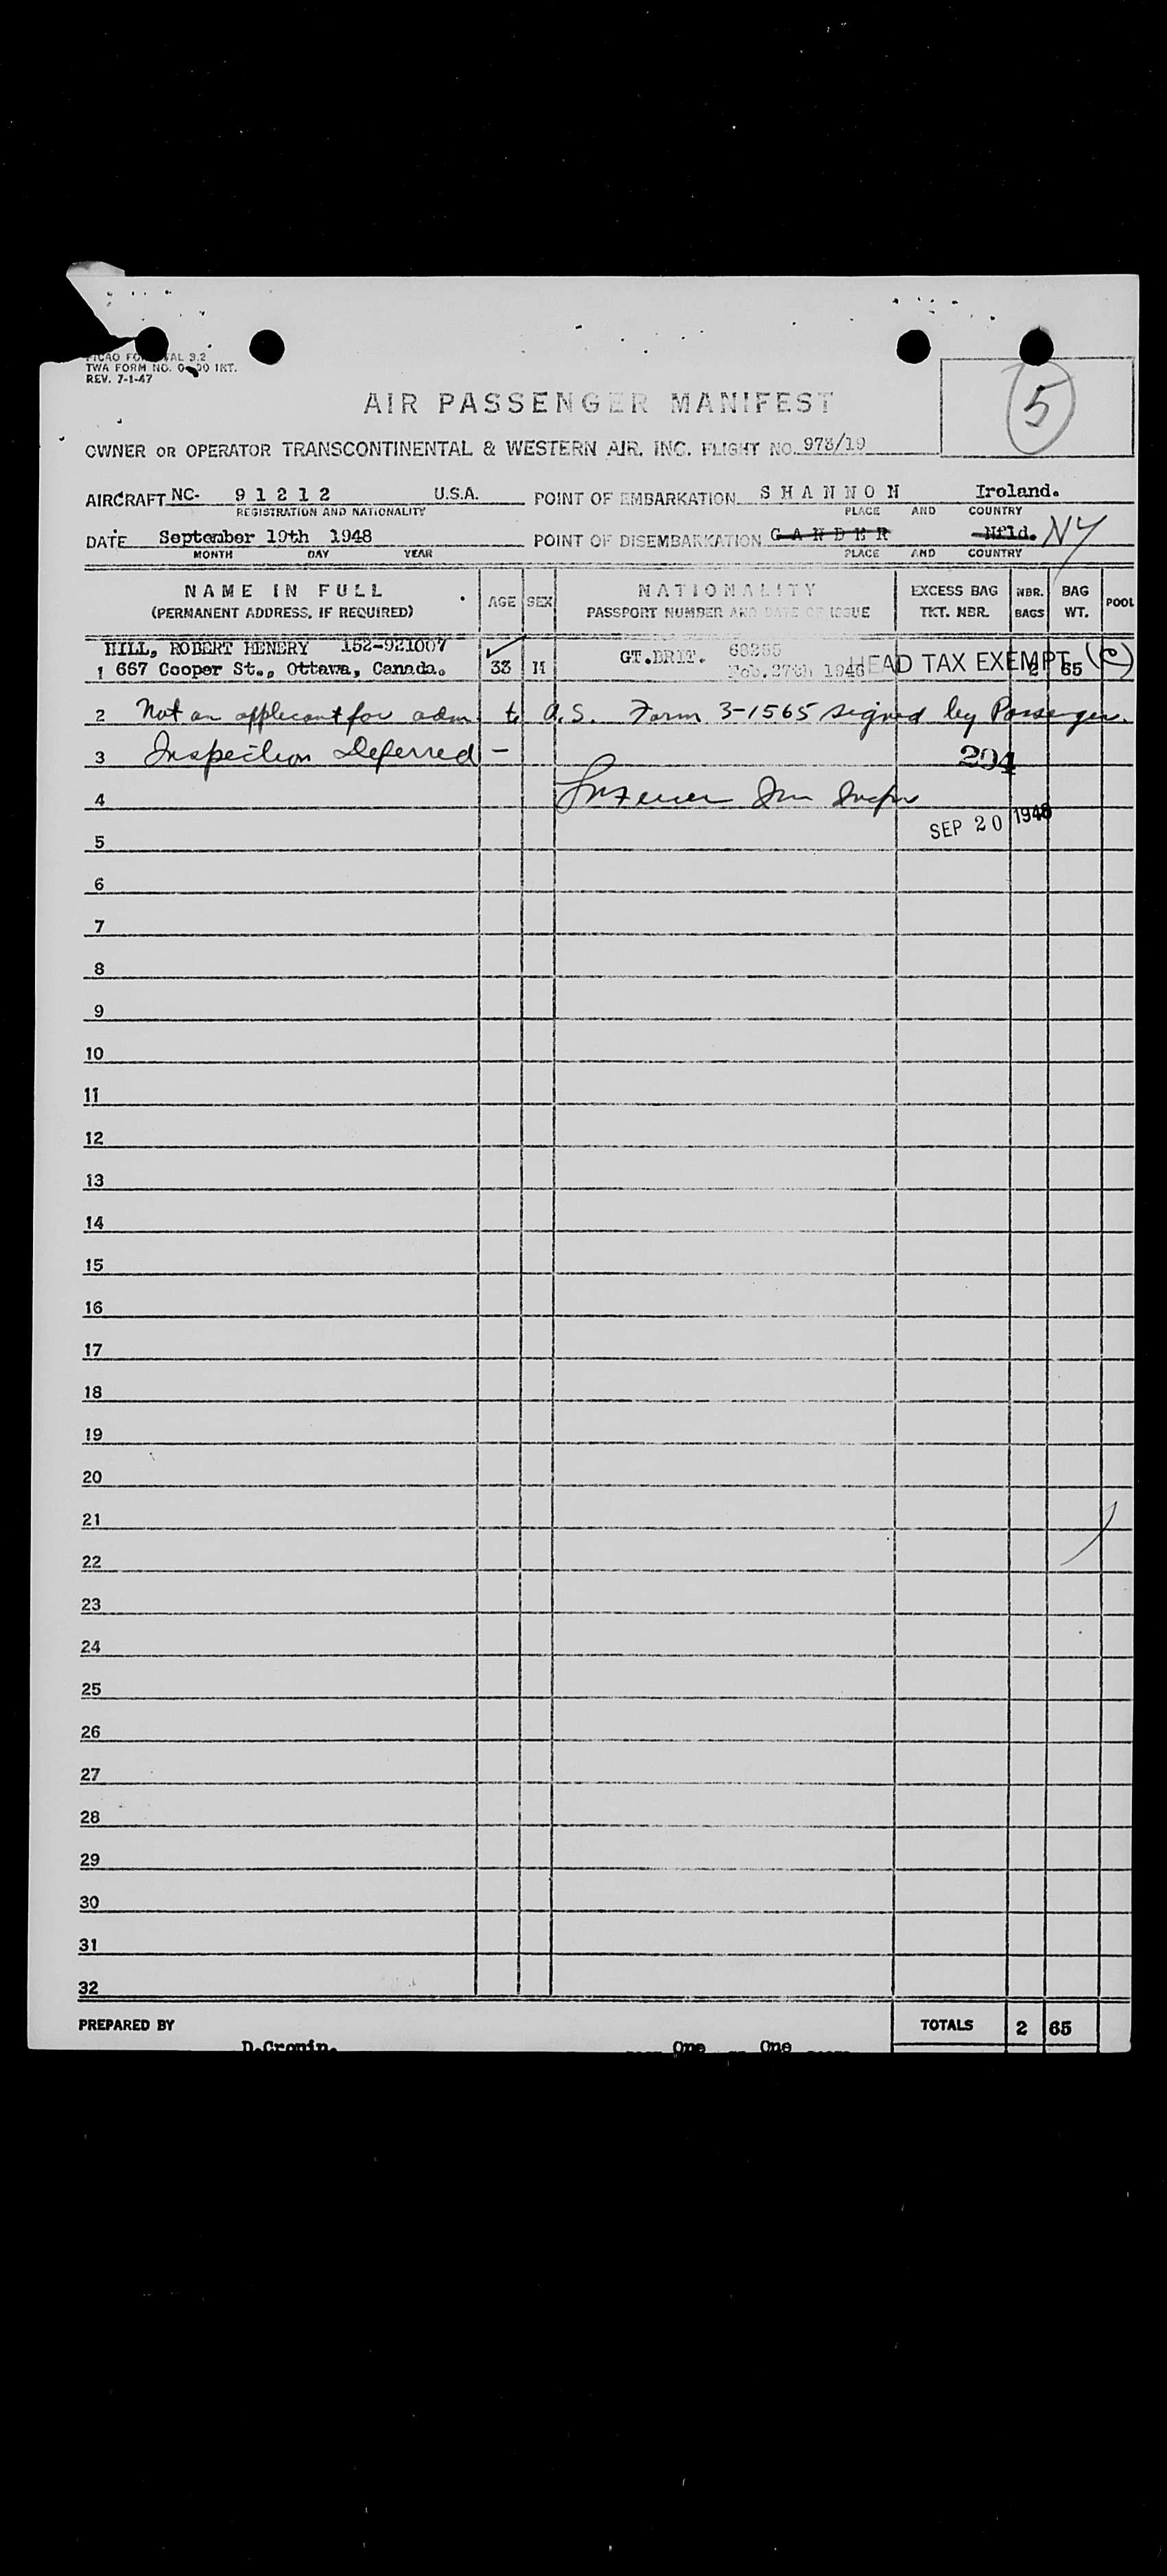 TWA FORM NO. INT.
REV. 7-1-47
5
AIR PASSENGER MANIFEST
OWNER OR OPERATOR TRANSCONTINENTAL & WESTERN AIR. INC. FLIGHT NO. 978/19
AIRCRAFT NC- 9 1 2 1 2 U.S.A. POINT OF EMBARKATION S H A N N O N Ireland.
REGISTRATION AND NATIONALITY PLACE AND COUNTRY
DATE September 19th 1948 POINT OF DISEMBARKATION G A N D E R Nfld. NY
MONTH DAY YEAR PLACE AND COUNTRY
NAME IN FULL AGE SEX NATIONALITY EXCESS BAG NBR. BAG POOL
(PERMANENT ADDRESS, IF REQUIRED) PASSPORT NUMBER AND DATE OF ISSUE TKT. NBR. BAGS WT.
HILL, ROBERT HENERY 152-921007 GT.BRIT.
1 667 Cooper St., Ottawa, Canada. 33 M Feb.27th 1946 HEAD TAX EXEMPT 2 65 (C)
2 Not an applicant for adm to U.S. Form 3-1565 signed by Passenger.
3 Inspection Deferred - 204
4 Imm Inspr
SEP 20 1948
5
6
7
8
9
10
11
12
13
14
15
16
17
18
19
20
21
22
23
24
25
26
27
28
29
30
31
32
PREPARED BY TOTALS 2 65
D.Cronin. One One